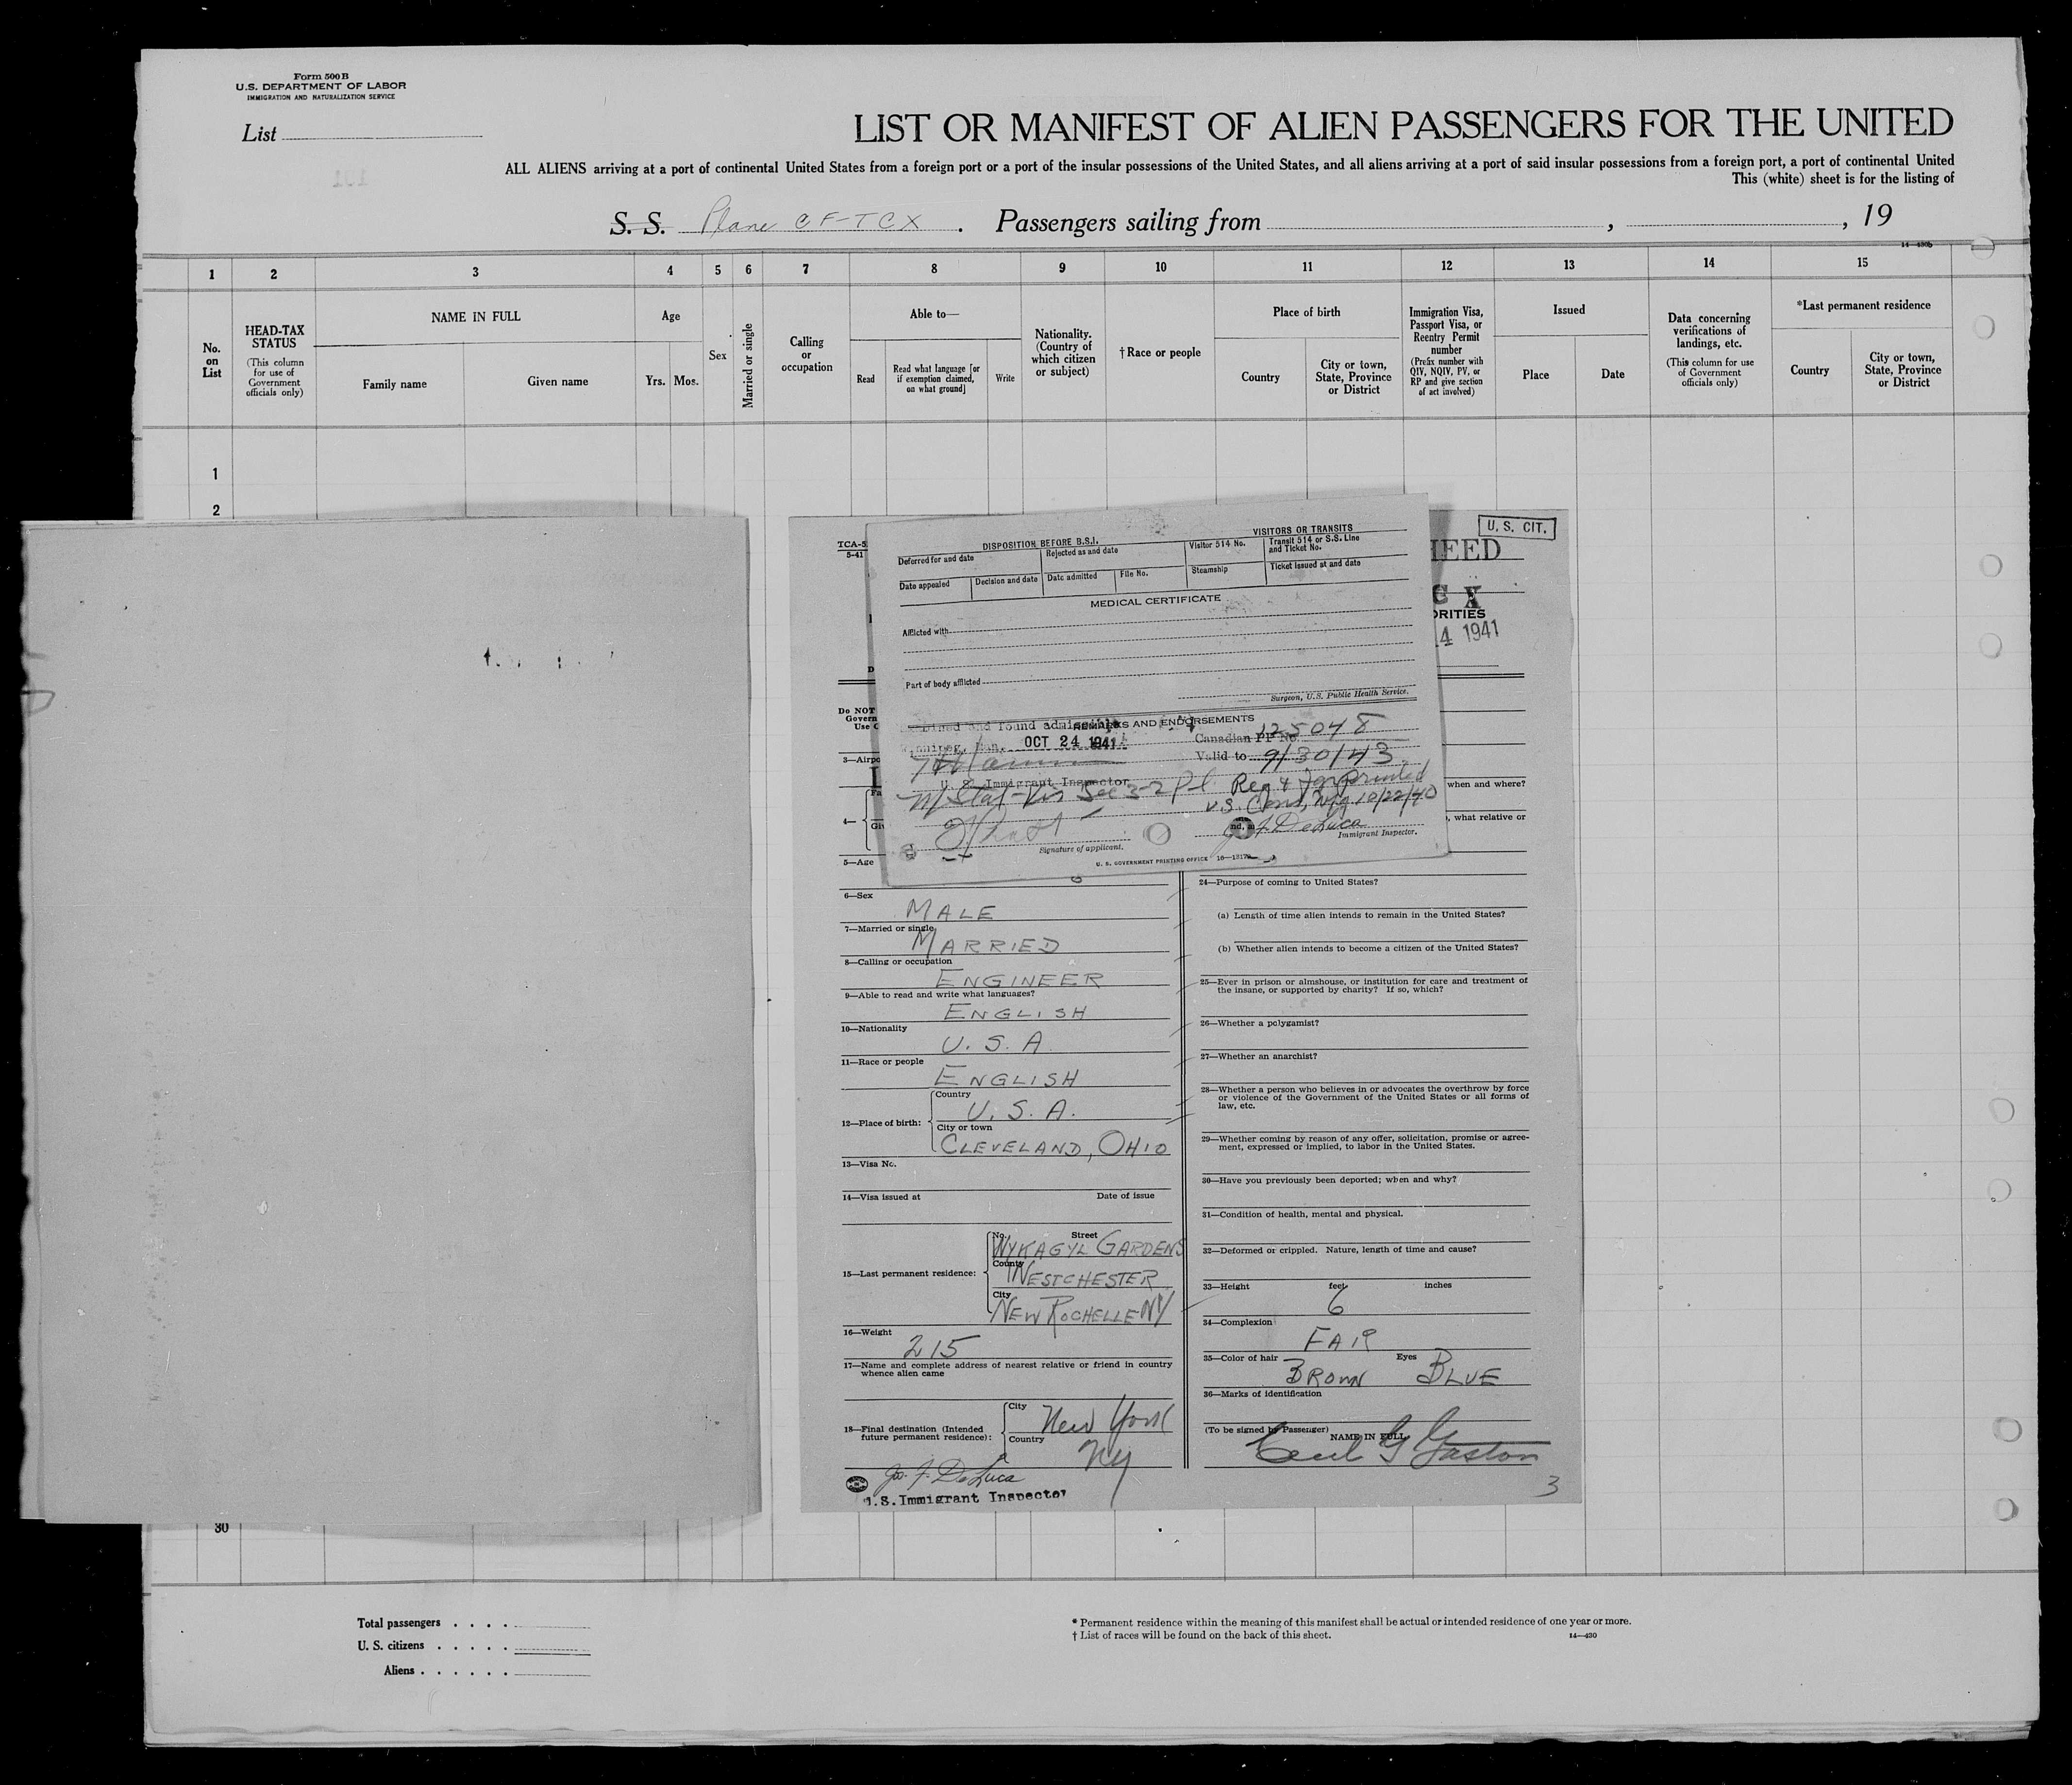 Form 500 B
U.S. DEPARTMENT OF LABOR
IMMIGRATION AND NATURALIZATION SERVICE
List
LIST OR MANIFEST OF ALIEN PASSENGERS FOR THE UNITED
ALL ALIENS arriving at a port of continental United States from a foreign port or a port of the insular possessions of the United States, and all aliens arriving at a port of said insular possessions from a foreign port, a port of continental United
This (white) sheet is for the listing of
S. S. Plane CF-TCX . Passengers sailing from , , 19
1 2 3 4 5 6 7 8 9 10 11 12 13 14 15
No. on List
HEAD-TAX STATUS
(This column for use of Government officials only)
NAME IN FULL
Family name Given name
Age
Yrs. Mos.
Sex
Married or single
Calling or occupation
Able to—
Read
Read what language [or if exemption claimed, on what ground]
Write
Nationality. (Country of which citizen or subject)
† Race or people
Place of birth
Country
City or town, State, Province or District
Immigration Visa, Passport Visa, or Reentry Permit number
(Prefix number with QIV, NQIV, PV, or RP and give section of act involved)
Issued
Place Date
Data concerning verifications of landings, etc.
(This column for use of Government officials only)
*Last permanent residence
Country
City or town, State, Province or District
1
2
TCA-5
5-41
U. S. CIT.
C X
ORITIES
4 1941
DISPOSITION BEFORE B.S.I.
VISITORS OR TRANSITS
Deferred for and date
Rejected as and date
Visitor 514 No.
Transit 514 or S.S. Line and Ticket No.
Date appealed
Decision and date
Date admitted
File No.
Steamship
Ticket issued at and date
MEDICAL CERTIFICATE
Afflicted with
Part of body afflicted
Surgeon, U.S. Public Health Service.
REMARKS AND ENDORSEMENTS
and found admissible
Winnipeg, Man. OCT 24 1941
Canadian PP No. 125048
Valid to 9/30/43
U. S. Immigrant Inspector
Sec 3-2 Reg & fgrprinted
U.S. Cons, Wpg 10/22/40
J. De Luca
Immigrant Inspector.
Signature of applicant.
U. S. GOVERNMENT PRINTING OFFICE
Do NOT
Govern
Use
3—Airpo
when and where?
4—
, what relative or
5—Age
6—Sex
MALE
7—Married or single
MARRIED
8—Calling or occupation
ENGINEER
9—Able to read and write what languages?
ENGLISH
10—Nationality
U. S. A
11—Race or people
ENGLISH
12—Place of birth:
Country
U. S. A.
City or town
CLEVELAND, OHIO
13—Visa No.
14—Visa issued at Date of issue
15—Last permanent residence:
No. Street
WYKAGYL GARDENS
County
WESTCHESTER
City
NEW ROCHELLE NY
16—Weight
215
17—Name and complete address of nearest relative or friend in country whence alien came
18—Final destination (Intended future permanent residence):
City
New York
Country
NY
Jos. J. De Luca
U.S. Immigrant Inspector
24—Purpose of coming to United States?
(a) Length of time alien intends to remain in the United States?
(b) Whether alien intends to become a citizen of the United States?
25—Ever in prison or almshouse, or institution for care and treatment of the insane, or supported by charity? If so, which?
26—Whether a polygamist?
27—Whether an anarchist?
28—Whether a person who believes in or advocates the overthrow by force or violence of the Government of the United States or all forms of law, etc.
29—Whether coming by reason of any offer, solicitation, promise or agreement, expressed or implied, to labor in the United States.
30—Have you previously been deported; when and why?
31—Condition of health, mental and physical.
32—Deformed or crippled. Nature, length of time and cause?
33—Height feet inches
6
34—Complexion
FAIR
35—Color of hair Eyes
BROWN BLUE
36—Marks of identification
(To be signed by Passenger)
NAME IN FULL
Cecil G Gaston
3
30
Total passengers . . . .
U. S. citizens . . . . .
Aliens . . . . . .
* Permanent residence within the meaning of this manifest shall be actual or intended residence of one year or more.
† List of races will be found on the back of this sheet.
14—430